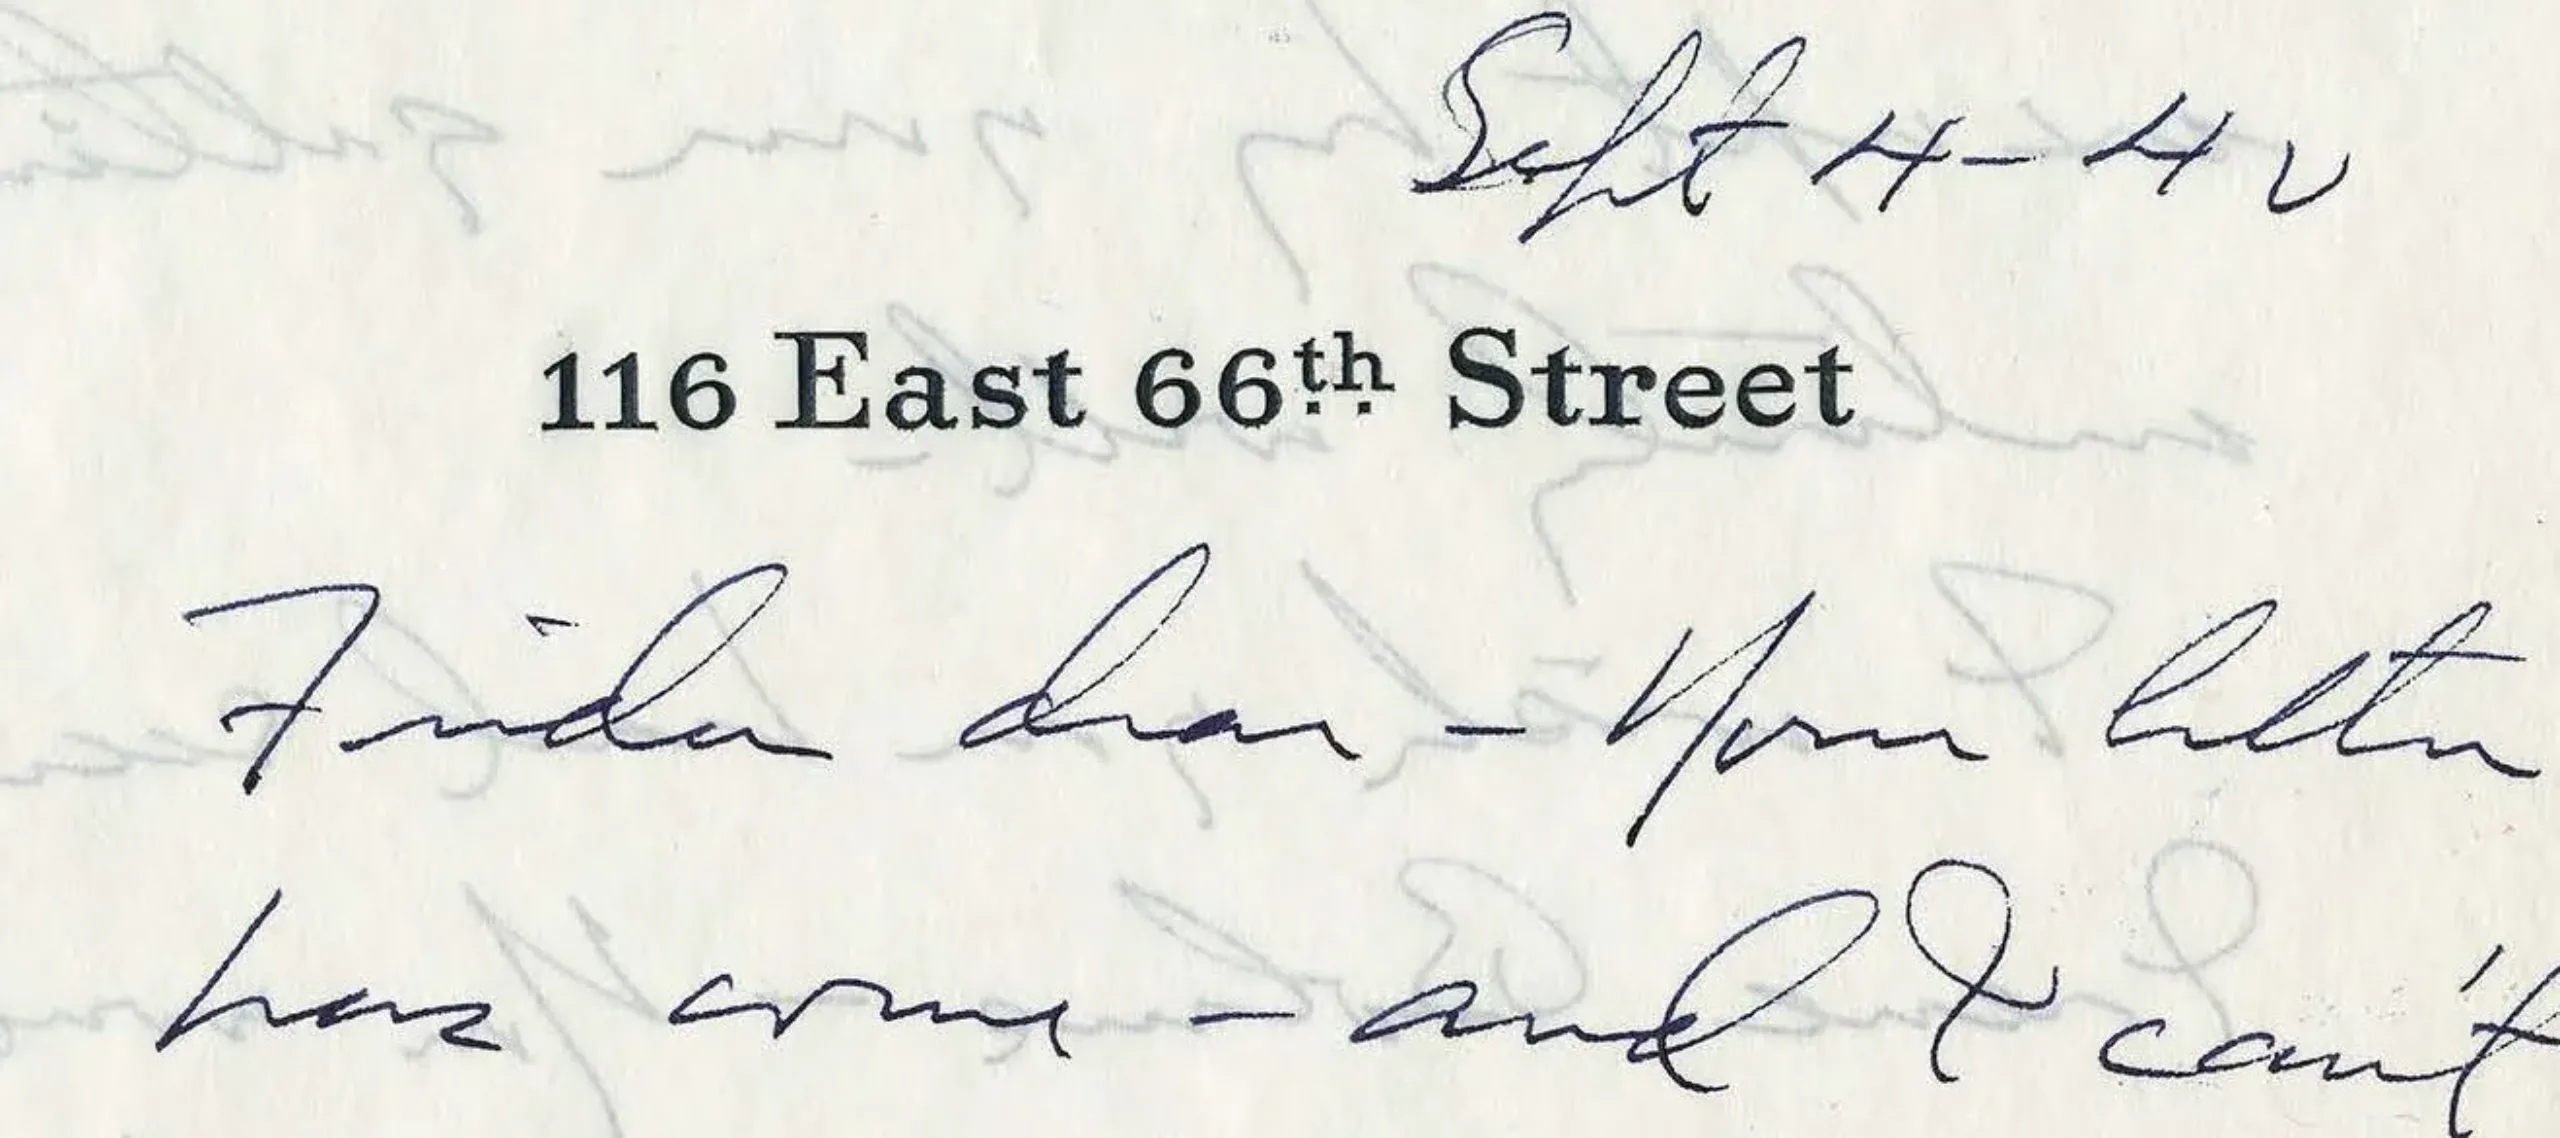 Sept 4-40
116 East 66th Street
Frida dear - Your letter
has come - and I can't